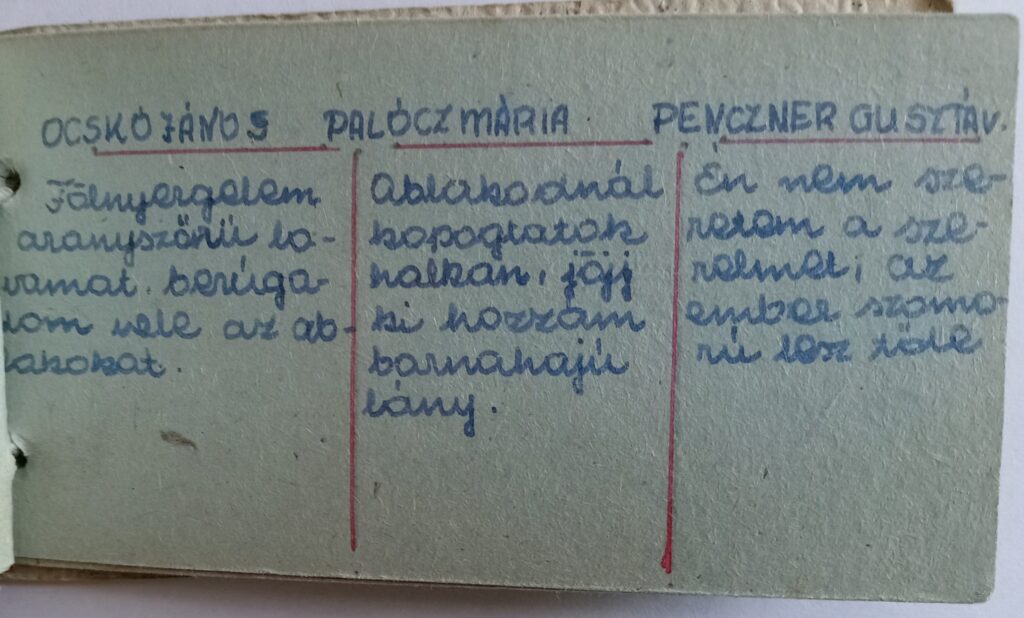 OCSKÓ JÁNOS
Fölnyergelem
aranyszőrű lo-
vamat. berúga-
tom vele az ab-
lakokat.
PALÓCZ MÁRIA
Ablakodnál
kopogtatok
halkan, jöjj
ki hozzám
barnahajú
lány.
PENCZNER GUSZTÁV.
Én nem sze-
retem a sze-
relmet, az
ember szomo-
rú lesz tőle